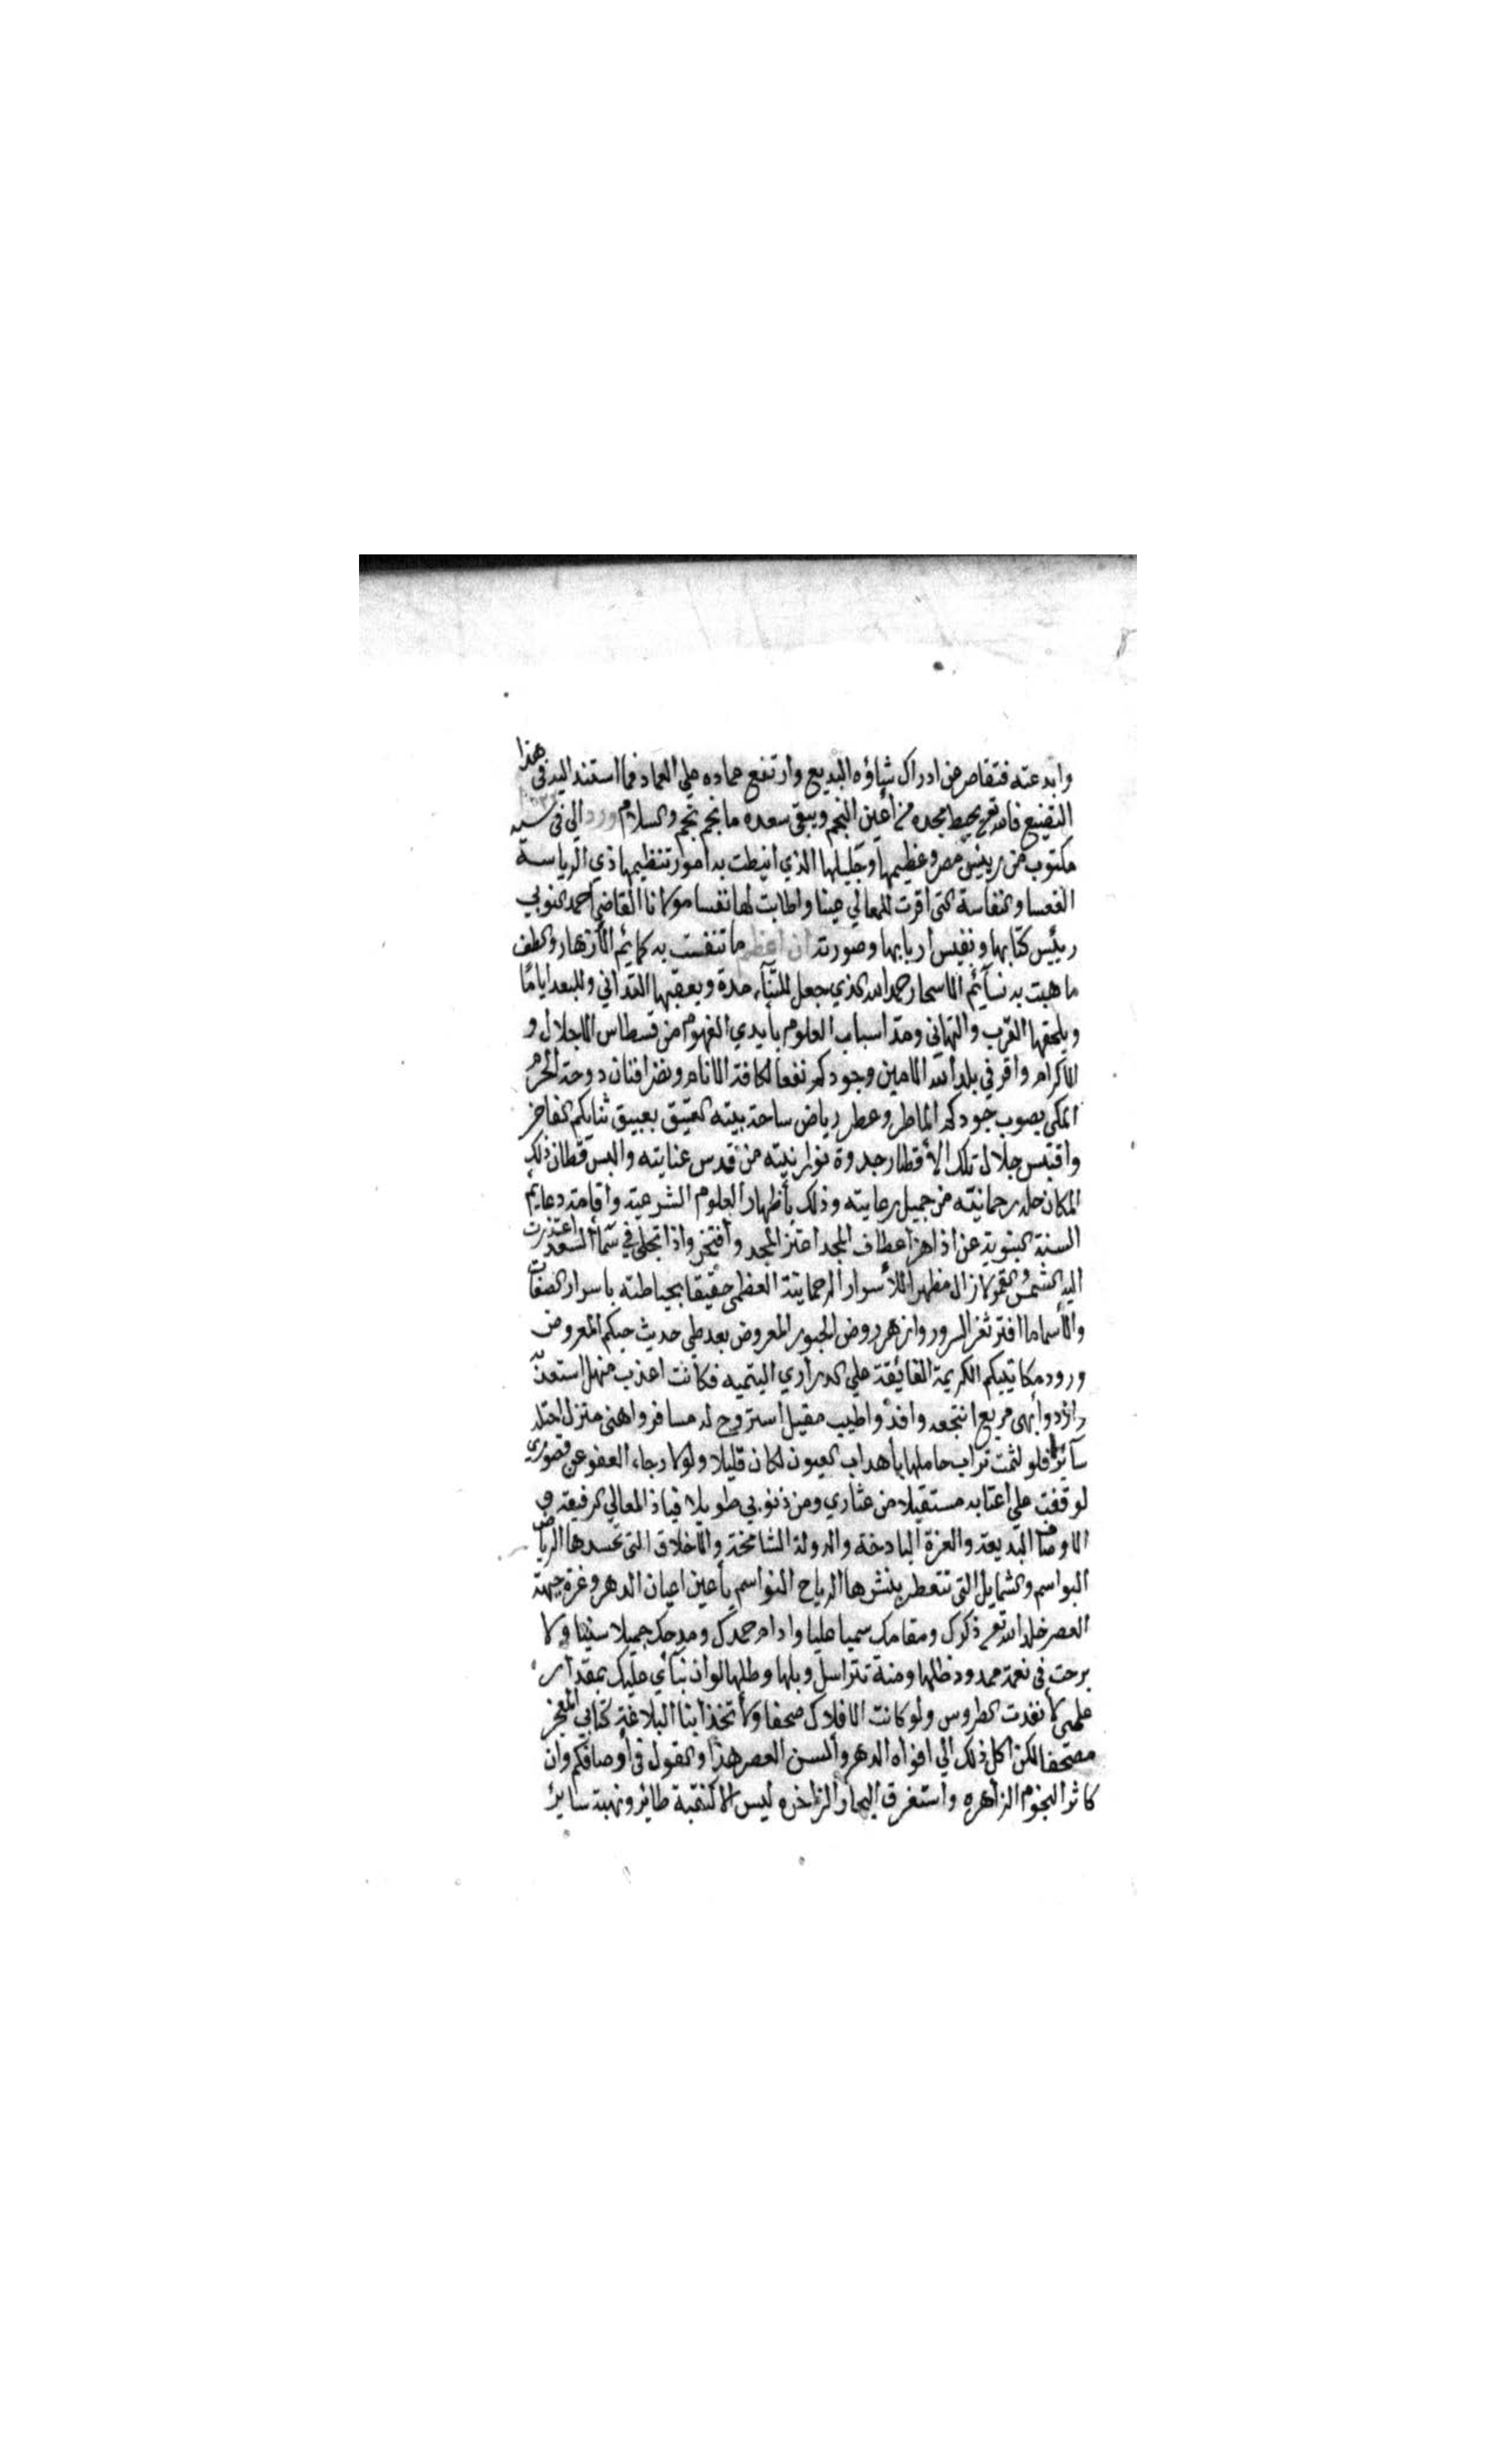 وابدعته فتقاصر عن ادراك شاؤه البديع وارتفع عماده علي العماد فما استند اليه في هذا
التصنيع فالله تعالى يحيط مجده من أعين النجم ويبقي سعده ما نجم نجم والسلام ورد الي في سنة
مكتوب من رييس مصر وعظيمها وجليلها الذي انيطت به امور تنظيمها ذي الرياسة
القعسا والنفاسة التي اقرت للمعالي عينا واطابت لها نفسا مولانا القاضي احمد النوبي
رييس كتابها ونفيس اربابها وصورته ان اعظم ما تنفست به كمائم الأزهار والطف
ما هبت به نسائم الاسحار حمد الله الذي جعل للتنآء مدة ويعقبها التداني وللبعد اياما
ويلحقها القرب والتهاني ومد اسباب العلوم بأيدي الفهوم من قسطاس الاجلال و
الاكرام واقر في بلد الله الامين وجودكم نفعا لكافة الانام ونضر افنان دوحة الحرم
المكي بصوب جودكم الماطر وعطر رياض ساحة بيته العتيق بعبيق ثنايكم الفاخر
واقتبس جلال تلك الأقطار جدوة نوارنيته من قدس عنايته والبس قطان ذلك
المكان حلة رحمانيته من جميل رعايته وذلك بأظهار العلوم الشرعية واقامة دعايم
السنة النبوية عن اذا هز اعطاف المجد اعتز المجد وافتخر واذا تجلي في سمآء السعد اعتذرت
اليه الشمس والقمر لازال مظهرا للأسرار الرحمانية العظمي حقيقا بحياطته باسرار الصفات
والأسما ما افتر ثغر السرور وازهر روض الحبور المعروض بعد طي حديث حبكم المعروض
ورود مكاتيبكم الكريمة الفائقة علي الدراري اليتميه فكانت اعذب منهل استعذبه
وارد وأبهى مربع انتجعه وافد واطيب مقيل استروح له مسافر واهنى منزل احتله
سآئر فلو لثمت تراب حاملها بأهداب العيون لكان قليلا ولولا رجاء العفو عن قصوري
لوقفت علي اعتابه مستقيلا من عثاري ومن ذنوبي طويلا فياذ المعالي الرفيقة و
الاوصاف البديعة والعزة الباذخة والدولة الشامخة والاخلاق التي تحسدها الرياض
البواسم والشمايل التي تتعطر بنشرها الرياح النواسم يأعين اعيان الدهر وغرة جبهة
العصر خلد الله تعالى ذكرك ومقامك سميا عليا وادام حمدك ومدحك جميلا سنيا ولا
برحت في نعمة ممدود ظلها ومنة تتراسل وبلها وطلها لو ان ثنآي عليك بمقدار
علمي لا نفدت الطروس ولو كانت الافلاك صحفا ولاتخذ ابنا البلاغة كتابي المعجز
مصحفا لكن اكل ذلك الي افواه الدهر وألسن العصر هذا والقول في أوصافكم وان
كاثر النجوم الزاهره واستغرق البحار الزاخره ليس الا كنغبة طائر ونهبة سائر